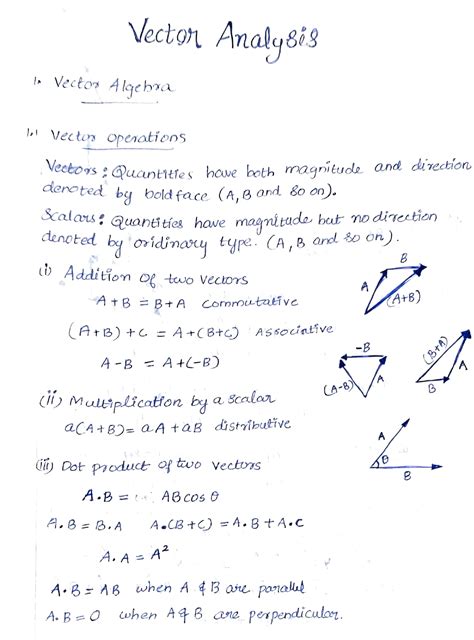 Vector Analysis
1. Vector Algebra
1.1 Vector operations
Vectors: Quantities have both magnitude and direction
denoted by boldface (A, B and so on).
Scalars: Quantities have magnitude but no direction
denoted by oridinary type. (A, B and so on).
(i) Addition of two vectors
A+B = B+A commutative
(A+B)+C = A+(B+C) Associative
A-B = A+(-B)
A
B
(A+B)
-B
(A-B)
A
(B+A)
A
B
(ii) Multiplication by a scalar
a(A+B) = aA + aB distributive
(iii) Dot product of two vectors
A.B = AB cos θ
A
θ
B
A.B = B.A A.(B+C) = A.B + A.C
A.A = A²
A.B = AB when A & B are parallel
A.B = 0 when A & B are perpendicular.